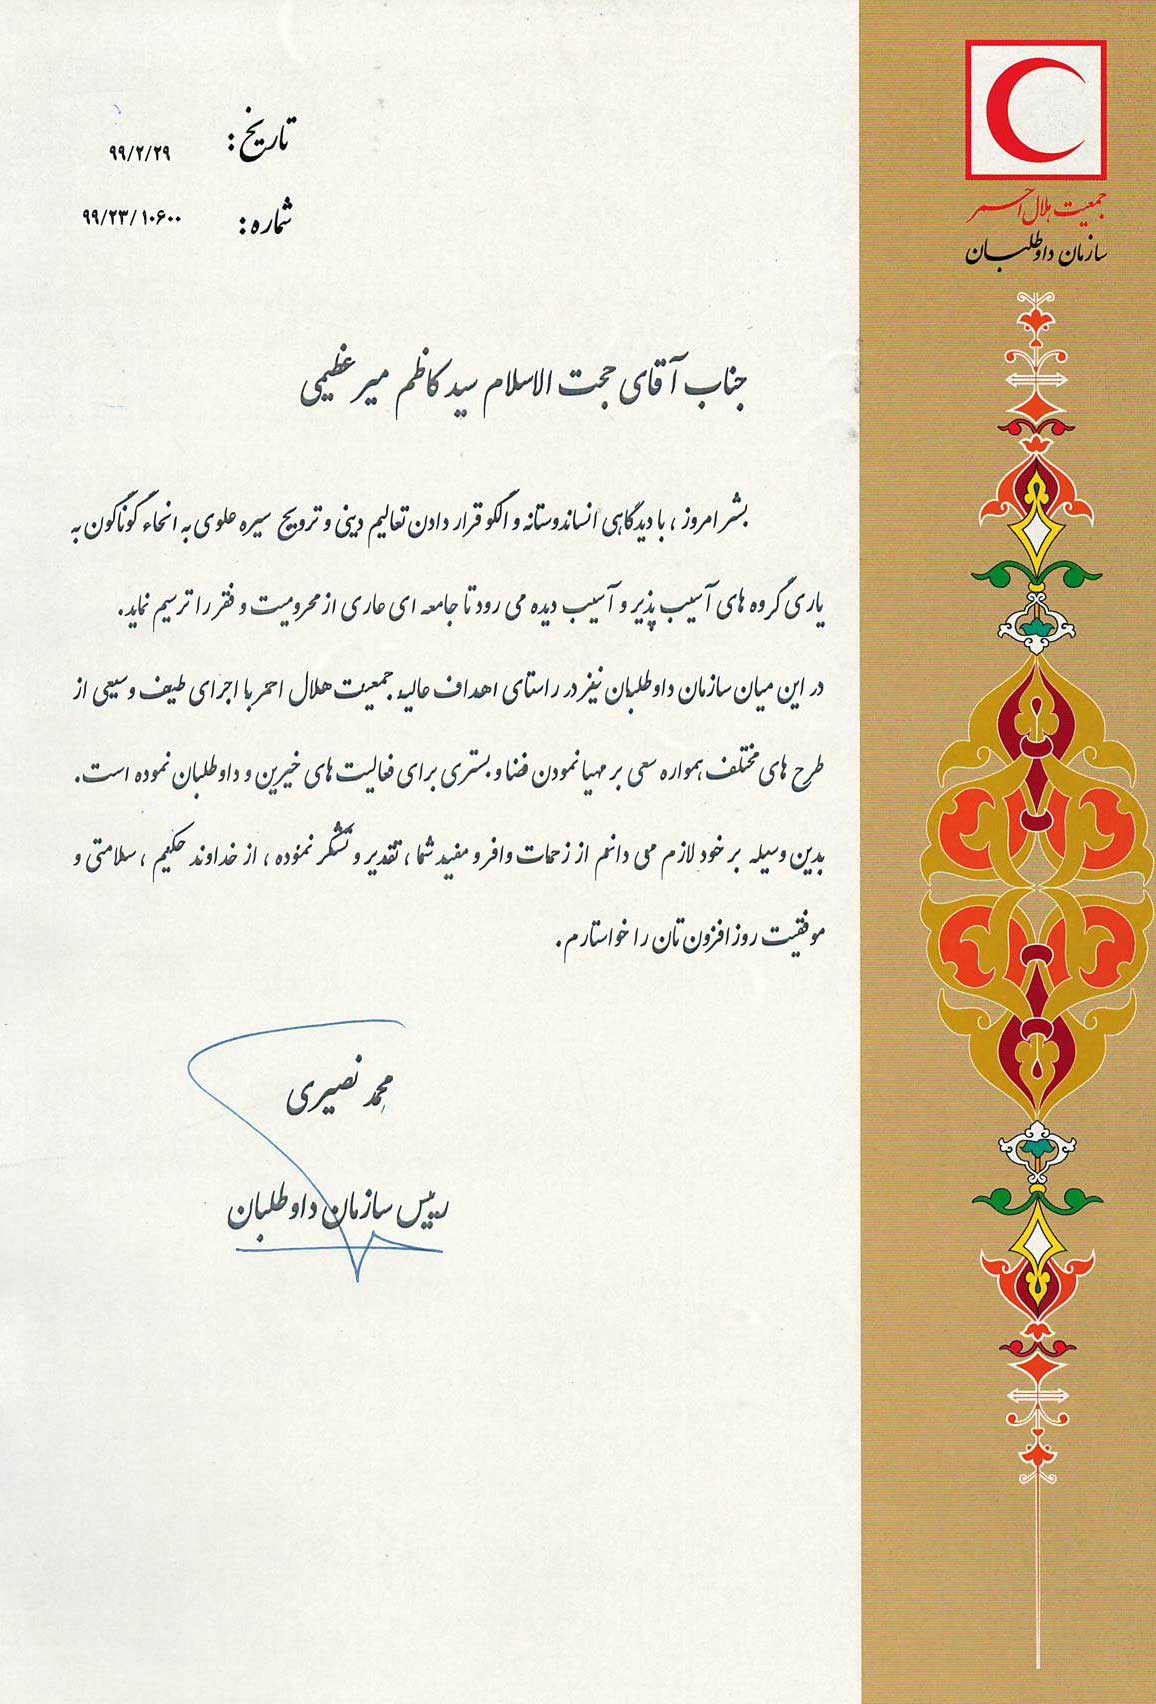 جمعیت هلال احمر
سازمان داوطلبان
تاریخ: ۹۹/۲/۲۹
شماره: ۹۹/۲۳/۱۰۶۰۰
جناب آقای حجت الاسلام سید کاظم میرعظیمی
بشر امروز، با دیدگاهی انساندوستانه و الگو قرار دادن تعالیم دینی و ترویج سیره علوی به انحاء گوناگون به
یاری گروه های آسیب پذیر و آسیب دیده می رود تا جامعه ای عاری از محرومیت و فقر را ترسیم نماید.
در این میان سازمان داوطلبان نیز در راستای اهداف عالیه جمعیت هلال احمر با اجرای طیف وسیعی از
طرح های مختلف همواره سعی بر مهیا نمودن فضا و بستری برای فعالیت های خیرین و داوطلبان نموده است.
بدین وسیله بر خود لازم می دانم از زحمات وافر و مفید شما، تقدیر و تشکر نموده، از خداوند حکیم، سلامتی و
موفقیت روزافزون تان را خواستارم.
محمد نصیری
رییس سازمان داوطلبان